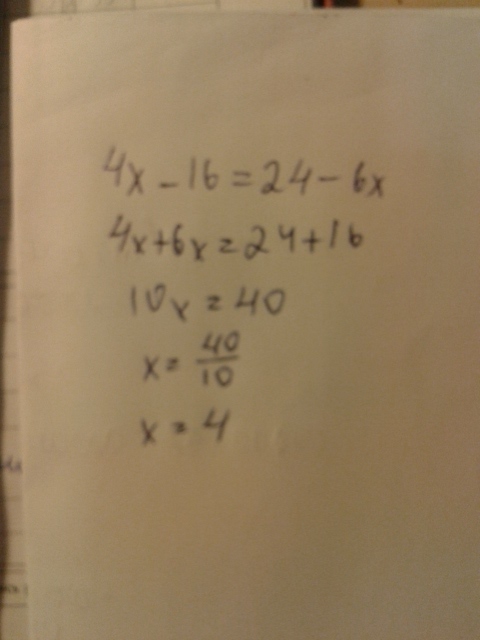 4x - 16 = 24 - 6x
4x + 6x = 24 + 16
10x = 40
x = 40/10
x = 4